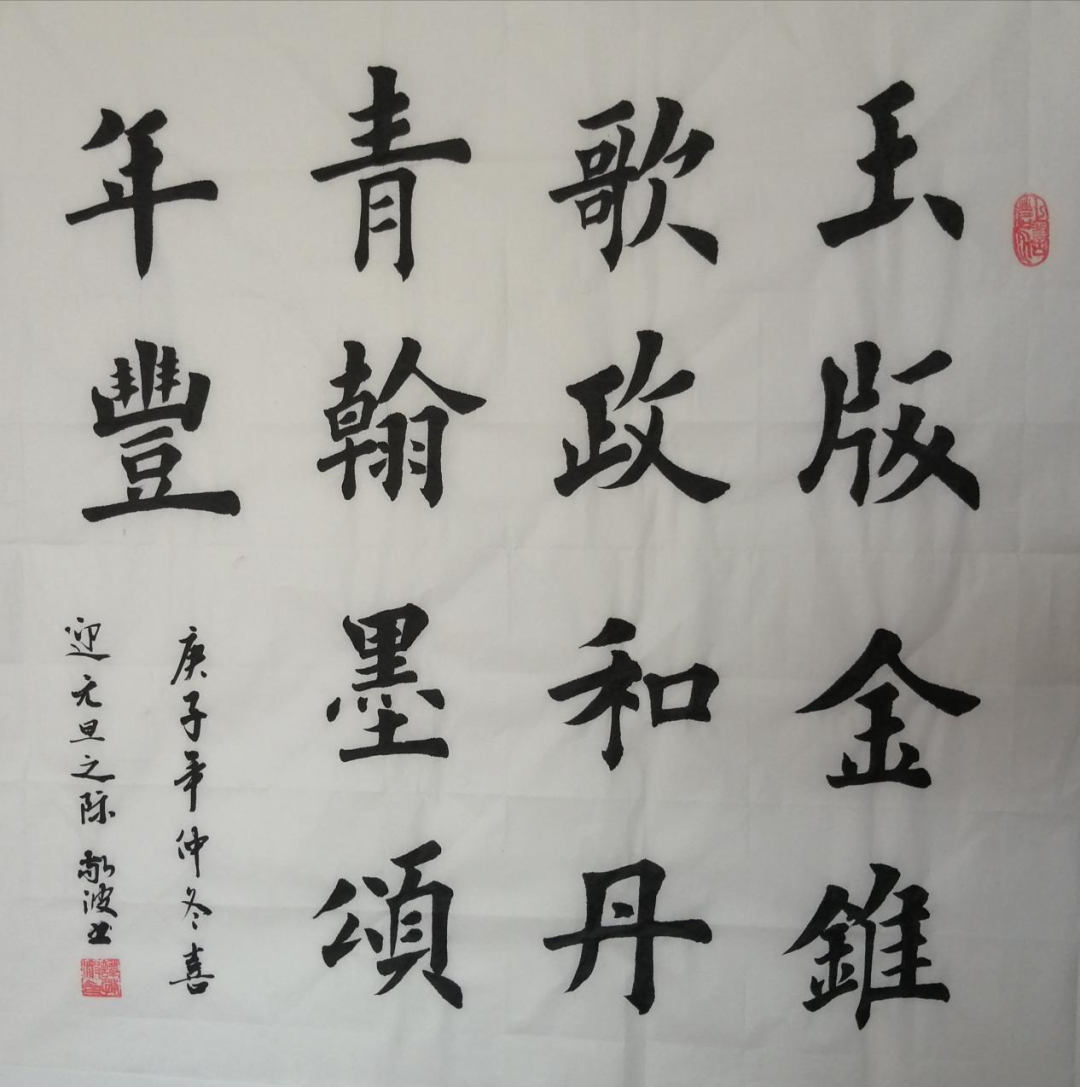 玉版金錐
歌政和丹
青翰墨頌
年豐
庚子年仲冬喜
迎元旦之际敬波书